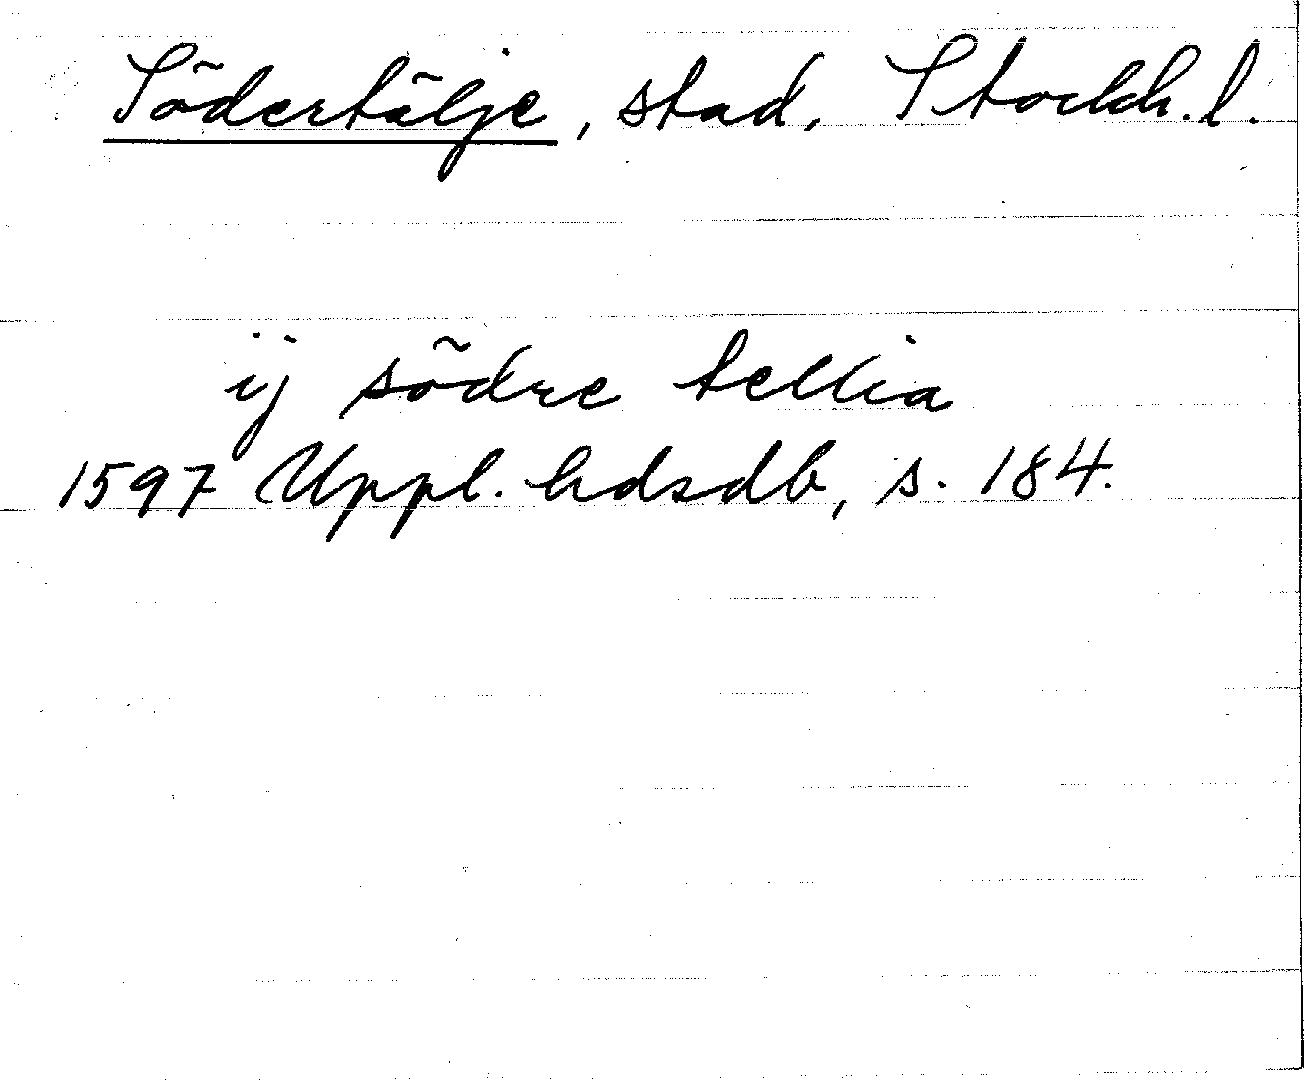 Södertälje, stad, Stockh. l.
ij södre tellia
1597 Uppl. hdsdb, s. 184.